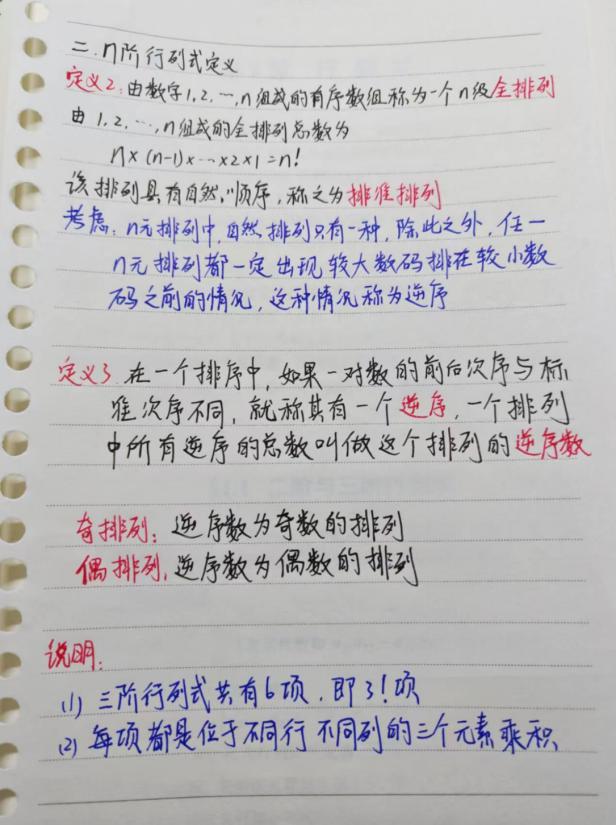 二.n阶行列式定义
定义2:由数字1,2,…,n组成的有序数组称为一个n级全排列
由 1,2,…,n组成的全排列总数为
n×(n-1)×…×2×1=n!
该排列具有自然顺序,称之为排准排列
考虑:n元排列中,自然排列只有一种,除此之外,任一
n元排列都一定出现较大数码排在较小数
码之前的情况,这种情况称为逆序
定义3 在一个排序中,如果一对数的前后次序与标
准次序不同,就称其有一个逆序,一个排列
中所有逆序的总数叫做这个排列的逆序数
奇排列:逆序数为奇数的排列
偶排列,逆序数为偶数的排列
说明:
(1) 三阶行列式共有6项,即3!项
(2) 每项都是位于不同行不同列的三个元素乘积